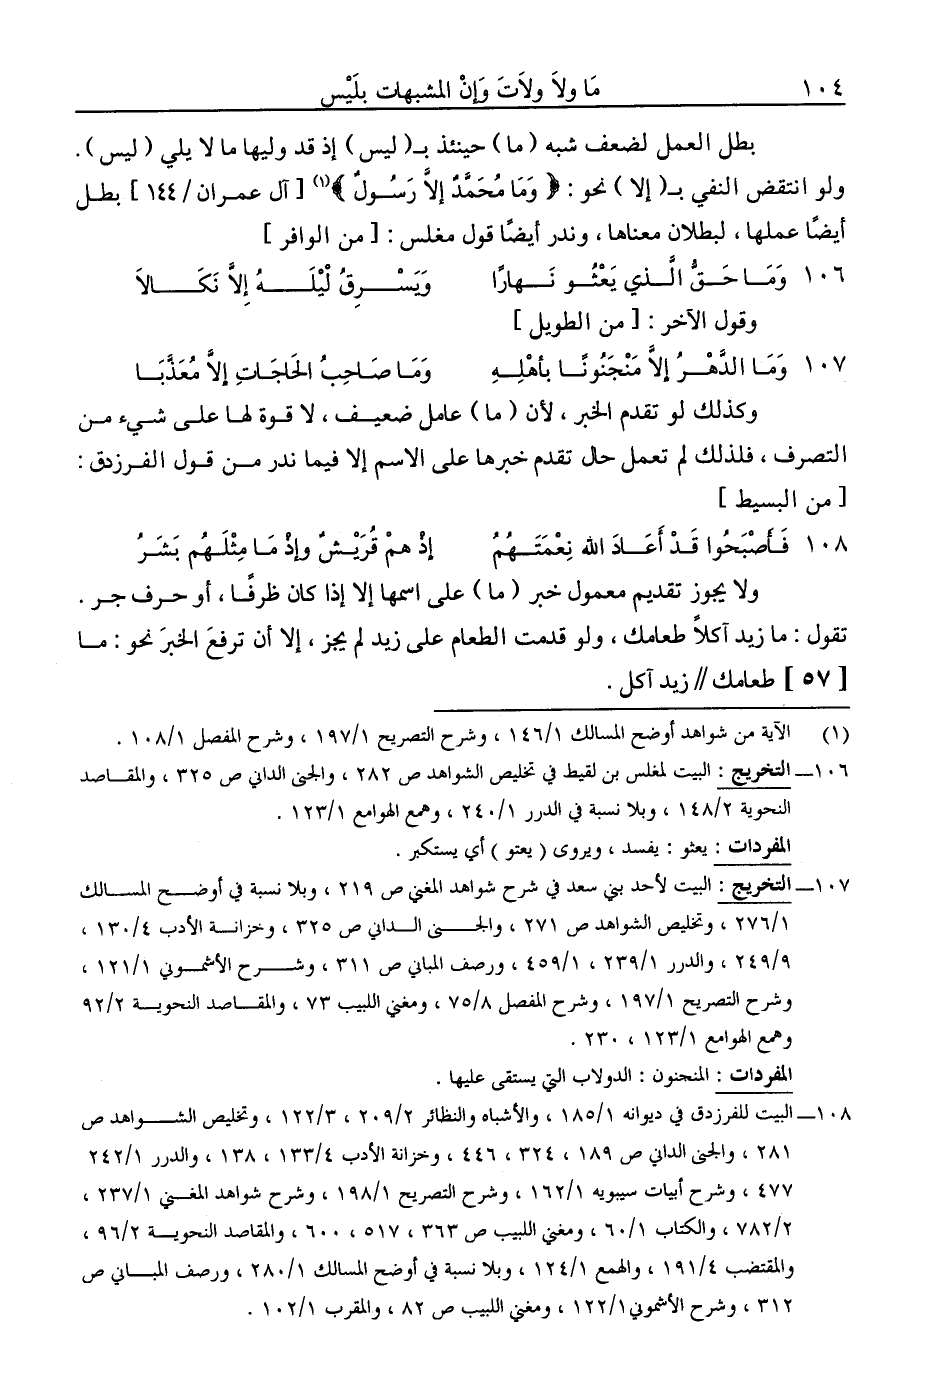 ١٠٤ مَا ولاَ ولاَتَ وَإنْ المشبهات بلَيْس
بطل العمل لضعف شبه ( ما ) حينئذ بـ( ليس ) إذ قد وليها ما لا يلي ( ليس ) .
ولو انتقض النفي بـ( إلا ) نحو : ﴿ وَمَا مُحَمَّدٌ إلاَّ رَسُولٌ ﴾(١) [ آل عمران / ١٤٤ ] بطل
أيضًا عملها ، لبطلان معناها ، وندر أيضًا قول مغلس : [ من الوافر ]
١٠٦ وَمَـا حَـقُّ الَّـذي يَعْثُـو نَـهارًا وَيَسْـرِقُ لَيْلَـهُ إلاَّ نَكَـالاَ
وقول الآخر : [ من الطويل ]
١٠٧ وَمَـا الدَّهْـرُ إلاَّ مَنْجَنُونًـا بأهْلِـهِ وَمَـا صَـاحِبُ الحَاجَـاتِ إلاَّ مُعَذَّبَـا
وكذلك لو تقدم الخبر ، لأن ( ما ) عامل ضعيف ، لا قوة لها على شيء من
التصرف ، فلذلك لم تعمل حال تقدم خبرها على الاسم إلا فيما ندر من قول الفرزدق :
[ من البسيط ]
١٠٨ فَـأَصْبَحُوا قَـدْ أَعَـادَ الله نِعْمَتَـهُمْ إذْ همْ قُرَيْشٌ وإذْ مَـا مِثْلَـهُم بَشَـرُ
ولا يجوز تقديم معمول خبر ( ما ) على اسمها إلا إذا كان ظرفًا ، أو حرف جر .
تقول : ما زيد آكلاً طعامك ، ولو قدمت الطعام على زيد لم يجز ، إلا أن ترفعَ الخبرَ نحو : ما
[ ٥٧ ] طعامك // زيد آكل .
(١) الآية من شواهد أوضح المسالك ١٤٦/١ ، وشرح التصريح ١٩٧/١ ، وشرح المفصل ١٠٨/١ .
١٠٦ــ التخريج : البيت لمغلس بن لقيط في تخليص الشواهد ص ٢٨٢ ، والجنى الداني ص ٣٢٥ ، والمقـاصد
النحوية ١٤٨/٢ ، وبلا نسبة في الدرر ٢٤٠/١ ، وهمع الهوامع ١٢٣/١ .
المفردات : يعثو : يفسد ، ويروى ( يعتو ) أي يستكبر .
١٠٧ــ التخريج : البيت لأحد بني سعد في شرح شواهد المغني ص ٢١٩ ، وبلا نسبة في أوضـح المسـالك
٢٧٦/١ ، وتخليص الشواهد ص ٢٧١ ، والجنـى الـداني ص ٣٢٥ ، وخزانـة الأدب ١٣٠/٤ ،
٢٤٩/٩ ، والدرر ٢٣٩/١ ، ٤٥٩/١ ، ورصف المباني ص ٣١١ ، وشـرح الأشمـوني ١٢١/١ ،
وشرح التصريح ١٩٧/١ ، وشرح المفصل ٧٥/٨ ، ومغني اللبيب ٧٣ ، والمقـاصد النحويـة ٩٢/٢
وهمع الهوامع ١٢٣/١ ، ٢٣٠ .
المفردات : المنجنون : الدولاب التي يستقى عليها .
١٠٨ــ البيت للفرزدق في ديوانه ١٨٥/١ ، والأشباه والنظائر ٢٠٩/٢ ، ١٢٢/٣ ، وتخليص الشـواهد ص
٢٨١ ، والجنى الداني ص ١٨٩ ، ٣٢٤ ، ٤٤٦ ، وخزانة الأدب ١٣٣/٤ ، ١٣٨ ، والدرر ٢٤٢/١
٤٧٧ ، وشرح أبيات سيبويه ١٦٢/١ ، وشرح التصريح ١٩٨/١ ، وشرح شواهد المغـني ٢٣٧/١ ،
٧٨٢/٢ ، والكتاب ٦٠/١ ، ومغني اللبيب ص ٣٦٣ ، ٥١٧ ، ٦٠٠ ، والمقاصد النحويـة ٩٦/٢ ،
والمقتضب ١٩١/٤ ، والهمع ١٢٤/١ ، وبلا نسبة في أوضح المسالك ٢٨٠/١ ، ورصف المبـاني ص
٣١٢ ، وشرح الأشموني ١٢٢/١ ، ومغني اللبيب ص ٨٢ ، والمقرب ١٠٢/١ .